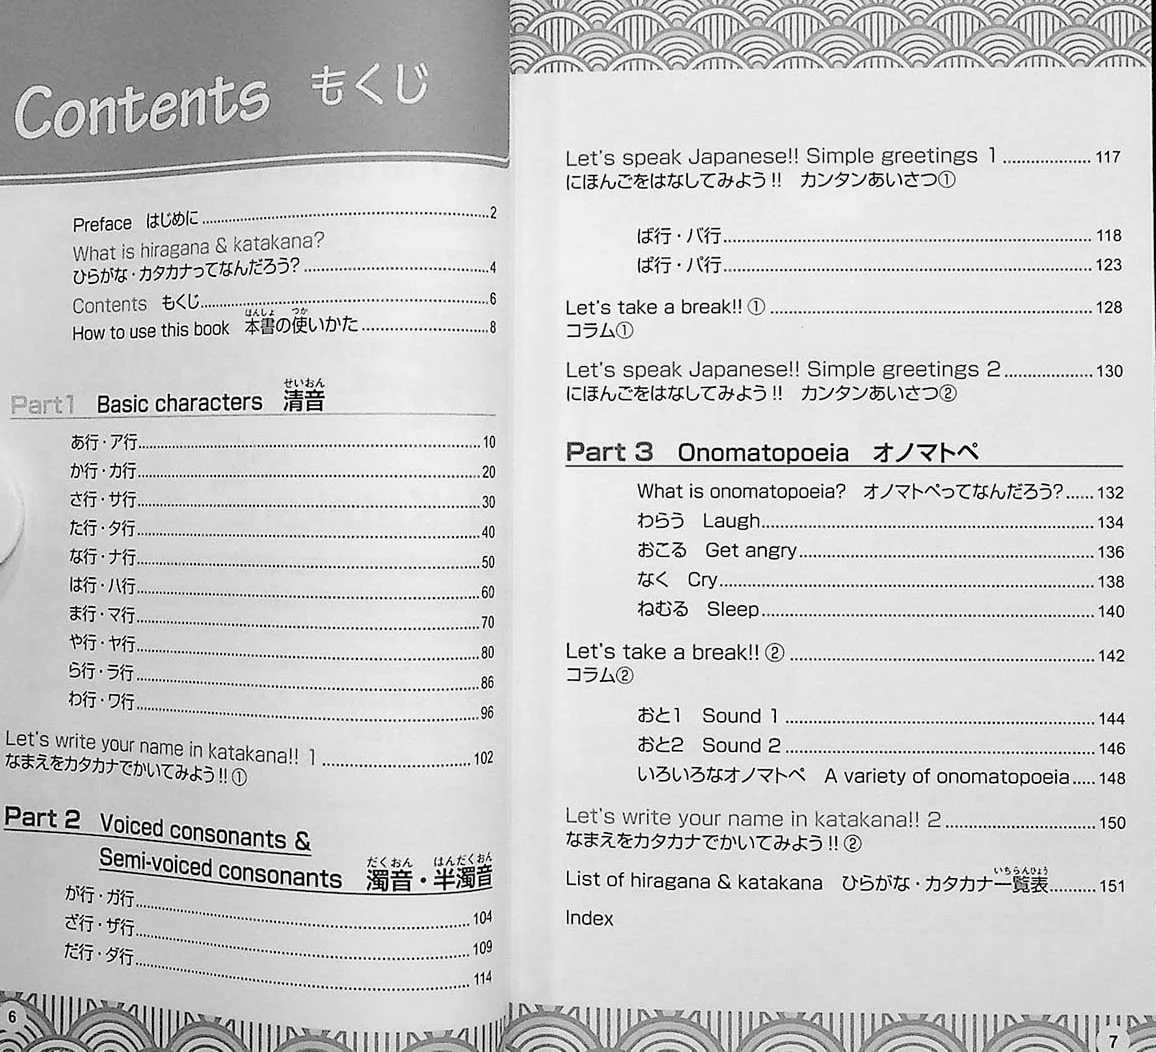 Contents もくじ
Preface はじめに 2
What is hiragana & katakana?
ひらがな・カタカナってなんだろう? 4
Contents もくじ 6
How to use this book 本書の使いかた 8
ほんしょ つか
せいおん
Part1 Basic characters 清音
あ行・ア行 10
か行・カ行 20
さ行・サ行 30
た行・タ行 40
な行・ナ行 50
は行・ハ行 60
ま行・マ行 70
や行・ヤ行 80
ら行・ラ行 86
わ行・ワ行 96
Let's write your name in katakana!! 1 102
なまえをカタカナでかいてみよう!!①
Part 2 Voiced consonants &
だくおん はんだくおん
Semi-voiced consonants 濁音・半濁音
が行・ガ行 104
ざ行・ザ行 109
だ行・ダ行 114
6
Let's speak Japanese!! Simple greetings 1 117
にほんごをはなしてみよう!! カンタンあいさつ①
ば行・バ行 118
ぱ行・パ行 123
Let's take a break!! ① 128
コラム①
Let's speak Japanese!! Simple greetings 2 130
にほんごをはなしてみよう!! カンタンあいさつ②
Part 3 Onomatopoeia オノマトペ
What is onomatopoeia? オノマトペってなんだろう? 132
わらう Laugh 134
おこる Get angry 136
なく Cry 138
ねむる Sleep 140
Let's take a break!! ② 142
コラム②
おと1 Sound 1 144
おと2 Sound 2 146
いろいろなオノマトペ A variety of onomatopoeia 148
Let's write your name in katakana!! 2 150
なまえをカタカナでかいてみよう!!②
いちらんひょう
List of hiragana & katakana ひらがな・カタカナ一覧表 151
Index
7